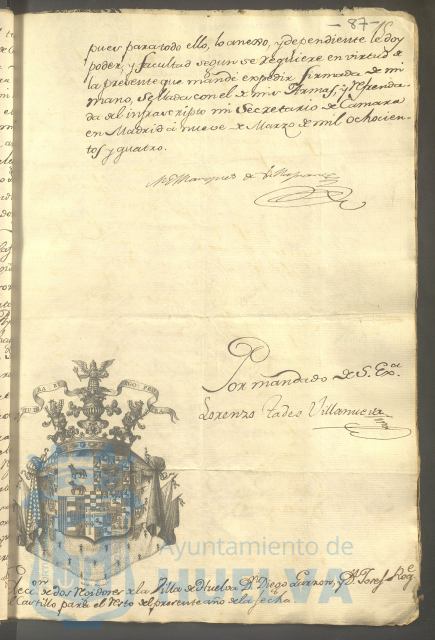 -87-
pues para todo ello, lo anexso, y dependiente le doy
poder, y facultad segun se requiere en virtud de
la presente que mandé expedir firmada de mi
mano, sellada con el de mis Armas, y refrenda-
da del infrascripto mi Secretario de Camara
en Madrid à nueve de Marzo de mil ochocien-
tos y quatro.
El Marques de Villafranca
Por mandado de S. Exa.
Lorenzo Tadeo Villanueva
Elecc.on de dos Rexidores de la Villa de Huelva Dn. Diego Garzon, y Dn. Josef Roqe
Castillo para el resto del presente año de la fecha
Ayuntamiento de
HUELVA